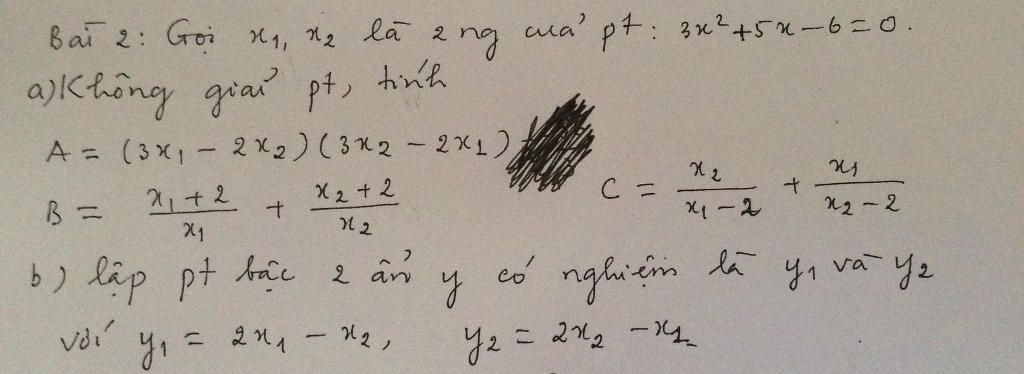 Bài 2: Gọi x₁, x₂ là 2 ng của pt: 3x² + 5x - 6 = 0.
a) Không giải pt, tính
A = (3x₁ - 2x₂)(3x₂ - 2x₁)
B = (x₁ + 2)/x₁ + (x₂ + 2)/x₂ C = x₂/(x₁ - 2) + x₁/(x₂ - 2)
b) lập pt bậc 2 ẩn y có nghiệm là y₁ và y₂
với y₁ = 2x₁ - x₂, y₂ = 2x₂ - x₁